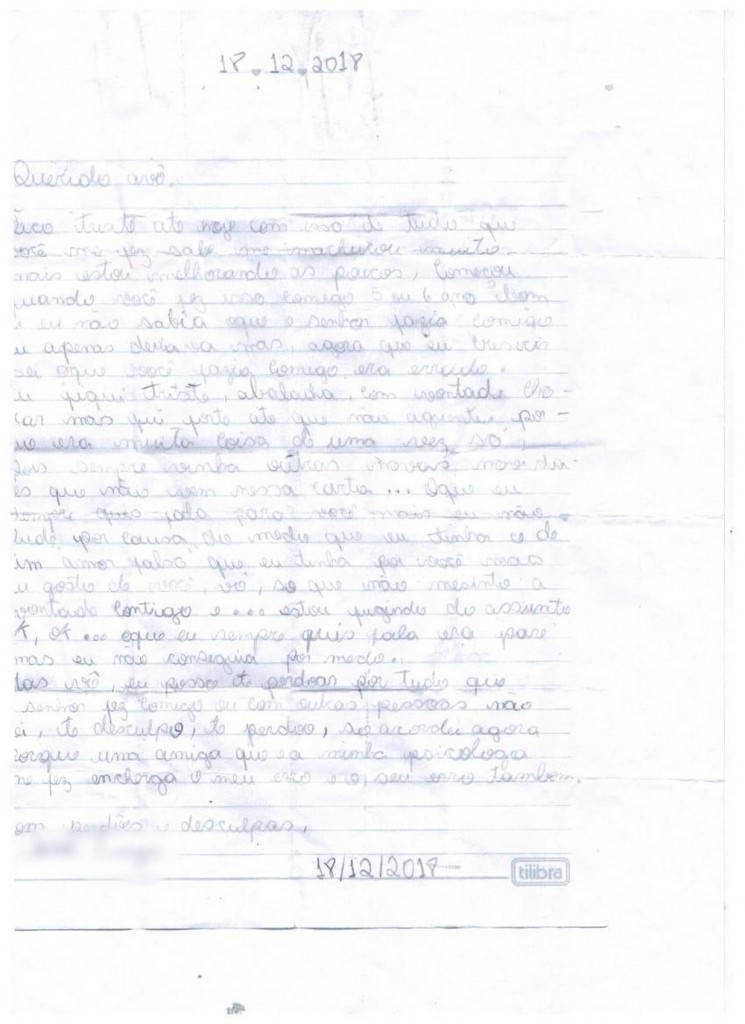 18.12.2018
Querido avô,
fico triste ate hoje com isso de tudo que
você me fez sabe me machucou muito.
mais estou melhorando as poucos, Começou
uando você fez isso comigo 5 ou 6 ano
eu não sabia oque o senhor fazia comigo
u apenas deixava mas, agora que eu cresci
sei oque você fazia comigo era errado.
u fiquei triste, abalada, com vontade cho-
rar mas fui forte ate que não aguentei por-
ue era muita coisa de uma vez só,
ois sempre vinha outras novas
es que não vem nessa carta... Oque eu
sempre quis fala para você mais eu não
ude por causa do medo que eu tinha e de
um amor falso que eu tinha por você mas
u gosto de você, vô, so que não mesinto a
vontade contigo e... estou fugindo do assunto
K, ok... oque eu sempre quis fala era pare
mas eu não conseguia por medo..
Mas vô, eu posso te perdoas por tudo que
senhor fez comigo ou com outras pessoas não
ei, te desculpo, te perdoo, so acordei agora
orque uma amiga que e a minha psicologa
me fez encherga o meu erro e o seu erro tambem.
om perdões e desculpas,
18/12/2018
tilibra